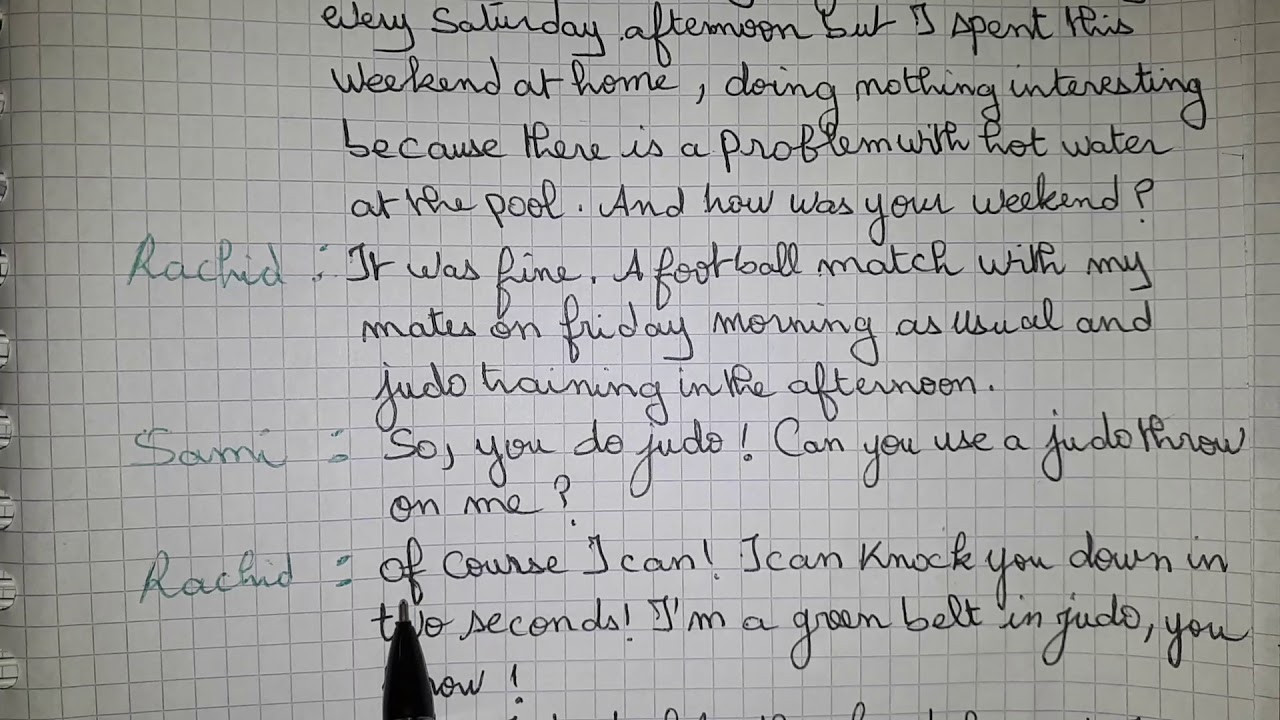 every Saturday afternoon but I spent this
weekend at home, doing nothing interesting
because there is a problem with hot water
at the pool. And how was your weekend?
Rachid : It was fine. A football match with my
mates on friday morning as usual and
judo training in the afternoon.
Sami : So, you do judo! Can you use a judo throw
on me?
Rachid : Of course I can! I can knock you down in
two seconds! I'm a green belt in judo, you